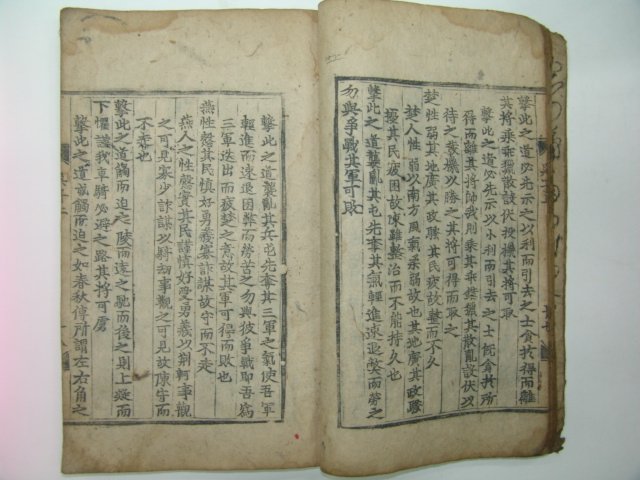 擊此之道必先示之以利而引去之士貪於得而離
其將乘乖獵散設伏投機其將可取
擊此之道必先示以小利而引去之士旣貪於所
得而離其將帥我則乘其乖獵其散亂設伏以
待之發機以勝之其將可得而取之
楚性弱其地廣其政騷其民疲故整而不久
楚人性弱以南方風氣柔弱故也其地廣其政騷
擾其民疲困故陳雖整治而不能持久也
擊此之道襲亂其屯先奪其氣輕進速退弊而勞之
勿與爭戰其軍可敗
擊此之道襲亂其兵屯先奪其三軍之氣使吾軍
輕進而速退困弊勞苦之勿與彼爭戰即吾
三軍迭出而疲楚之意故其軍可得而敗也
燕性慤其民慎好勇義寡詐謀故守而不走
燕人之性慤實其民謹慎好受勇義以荊軻事觀
之可見寡少詐謀以騎刼事觀之可見故陳守而
不走也
擊此之道觸而迫之陵而遠之馳而後之則上疑而
下懼謹我車騎必避之路其將可虜
擊此之道或觸而迫之如春秋傳所謂左右角之